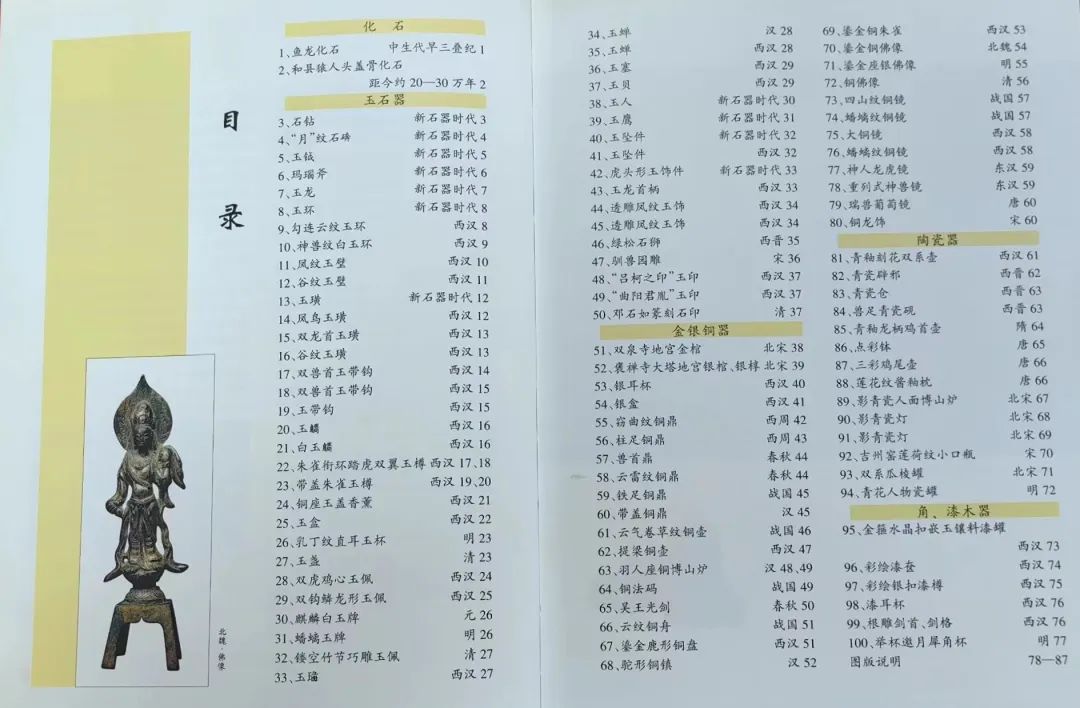 目录
化石
1、鱼龙化石 中生代早三叠纪 1
2、和县猿人头盖骨化石
距今约 20—30 万年 2
玉石器
3、石钻 新石器时代 3
4、“月”纹石磅 新石器时代 4
5、玉钺 新石器时代 5
6、玛瑙斧 新石器时代 6
7、玉龙 新石器时代 7
8、玉环 新石器时代 8
9、勾连云纹玉环 西汉 8
10、神兽纹白玉环 西汉 9
11、凤纹玉璧 西汉 10
12、谷纹玉璧 西汉 11
13、玉璜 新石器时代 12
14、凤鸟玉璜 西汉 12
15、双龙首玉璜 西汉 13
16、谷纹玉璜 西汉 13
17、双兽首玉带钩 西汉 14
18、双兽首玉带钩 西汉 15
19、玉带钩 西汉 15
20、玉觿 西汉 16
21、白玉觿 西汉 16
22、朱雀衔环踏虎双翼玉樽 西汉 17、18
23、带盖朱雀玉樽 西汉 19、20
24、铜座玉盖香薰 西汉 21
25、玉盒 西汉 22
26、乳丁纹直耳玉杯 明 23
27、玉盏 清 23
28、双虎鸡心玉佩 西汉 24
29、双钩鳞龙形玉佩 西汉 25
30、麒麟白玉牌 元 26
31、蟠螭玉牌 明 26
32、镂空竹节巧雕玉佩 清 27
33、玉瑙 西汉 27
北魏·佛像
34、玉蝉 汉 28
35、玉蝉 西汉 28
36、玉塞 西汉 29
37、玉贝 西汉 29
38、玉人 新石器时代 30
39、玉鹰 新石器时代 31
40、玉坠件 新石器时代 32
41、玉坠件 西汉 32
42、虎头形玉饰件 新石器时代 33
43、玉龙首柄 西汉 33
44、透雕凤纹玉饰 西汉 34
45、透雕凤纹玉饰 西汉 34
46、绿松石狮 西晋 35
47、驯兽园雕 宋 36
48、“吕柯之印”玉印 西汉 37
49、“曲阳君胤”玉印 西汉 37
50、邓石如篆刻石印 清 37
金银铜器
51、双泉寺地宫金棺 北宋 38
52、褒禅寺大塔地宫银棺、银椁 北宋 39
53、银耳杯 西汉 40
54、银盒 西汉 41
55、窃曲纹铜鼎 西周 42
56、柱足铜鼎 西周 43
57、兽首鼎 春秋 44
58、云雷纹铜鼎 春秋 44
59、铁足铜鼎 战国 45
60、带盖铜鼎 汉 45
61、云气卷草纹铜壶 战国 46
62、提梁铜壶 西汉 47
63、羽人座铜博山炉 汉 48、49
64、铜法码 战国 49
65、吴王光剑 春秋 50
66、云纹铜舟 战国 51
67、鎏金鹿形铜盘 西汉 51
68、驼形铜镇 汉 52
69、鎏金铜朱雀 西汉 53
70、鎏金铜佛像 北魏 54
71、鎏金座银佛像 明 55
72、铜佛像 清 56
73、四山纹铜镜 战国 57
74、蟠螭纹铜镜 战国 57
75、大铜镜 西汉 58
76、蟠螭纹铜镜 西汉 58
77、神人龙虎镜 东汉 59
78、重列式神兽镜 东汉 59
79、瑞兽葡萄镜 唐 60
80、铜龙饰 宋 60
陶瓷器
81、青釉刻花双系壶 西汉 61
82、青瓷辟邪 西晋 62
83、青瓷仓 西晋 63
84、兽足青瓷砚 西晋 63
85、青釉龙柄鸡首壶 隋 64
86、点彩钵 唐 65
87、三彩鸡尾壶 唐 66
88、莲花纹酱釉枕 唐 66
89、影青瓷人面博山炉 北宋 67
90、影青瓷灯 北宋 68
91、影青瓷灯 北宋 69
92、吉州窑莲荷纹小口瓶 宋 70
93、双系瓜棱罐 北宋 71
94、青花人物瓷罐 明 72
角、漆木器
95、金箍水晶扣嵌玉镶料漆罐
西汉 73
96、彩绘漆奁 西汉 74
97、彩绘银扣漆樽 西汉 75
98、漆耳杯 西汉 76
99、根雕剑首、剑格 西汉 76
100、举杯邀月犀角杯 明 77
图版说明 78—87